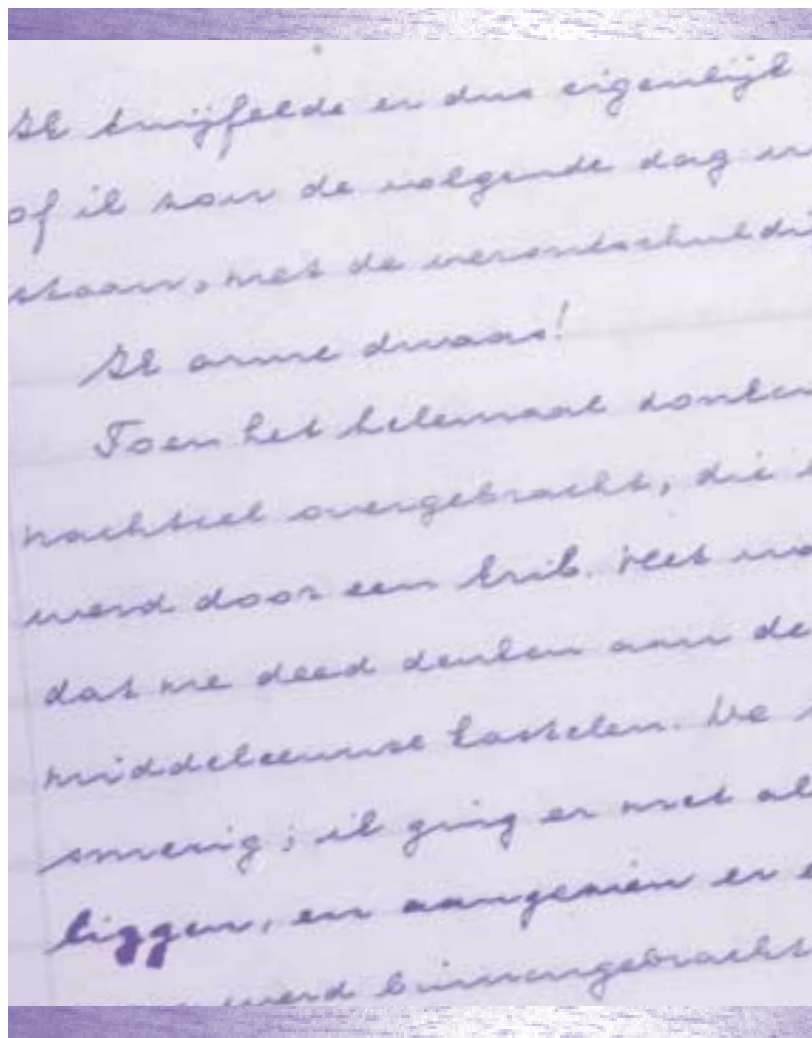 Ik twijfelde er dus eigenlijk
of ik zou de volgende dag
staan, met de verontschuldi
Ik arme dwaas!
Toen het helemaal donker
nachtcel overgebracht, die
werd door een krib. Het wa
dat me deed denken aan de
middeleeuwse kastelen. De
smerig; ik ging er met al
liggen, en aangezien er e
werd binnengebracht